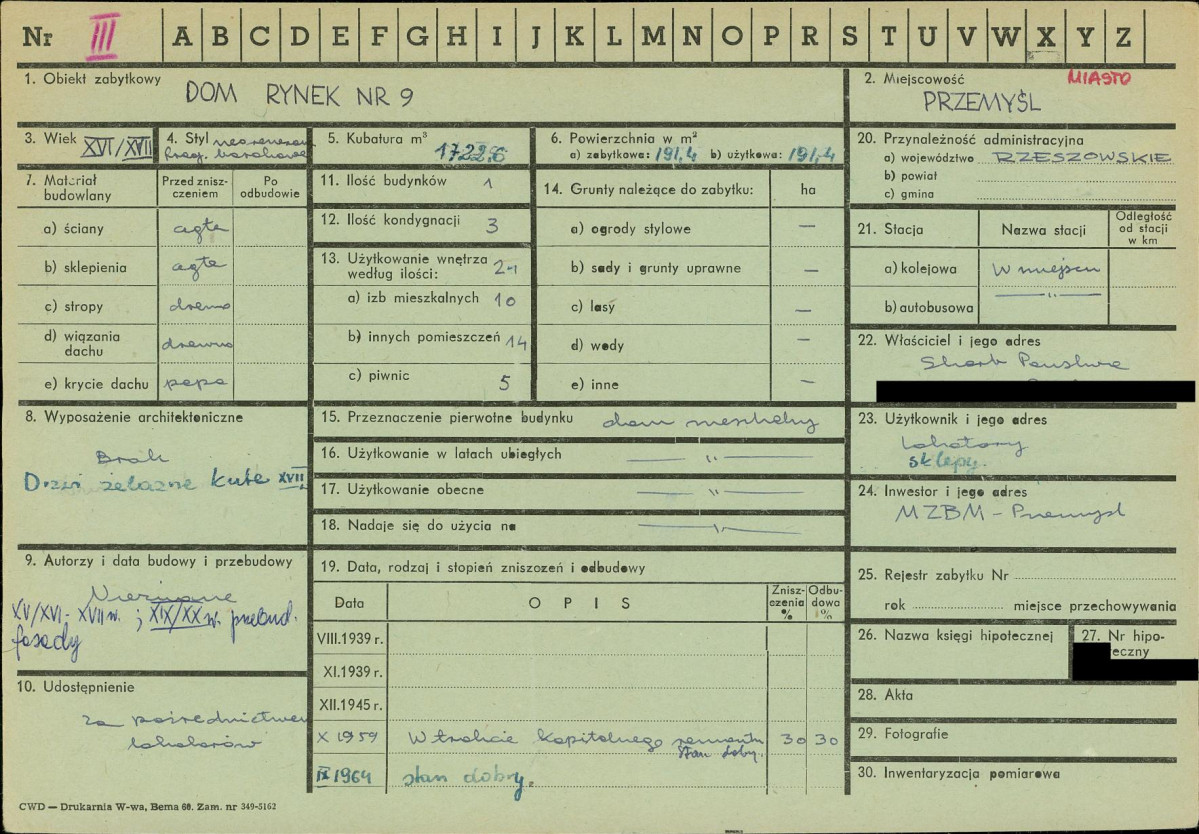 Nr III A B C D E F G H I J K L M N O P R S T U V W X Y Z
1. Obiekt zabytkowy
DOM RYNEK NR 9
2. Miejscowość
MIASTO
PRZEMYŚL
3. Wiek XVI/XVII
4. Styl
frag. barokowe
5. Kubatura m³
1722,6
6. Powierzchnia w m²
a) zabytkowa: 191,4 b) użytkowa: 191,4
20. Przynależność administracyjna
a) województwo RZESZOWSKIE
b) powiat
c) gmina
7. Materiał budowlany
Przed zniszczeniem
Po odbudowie
a) ściany cegła
b) sklepienia cegła
c) stropy drewno
d) wiązania dachu drewno
e) krycie dachu papa
11. Ilość budynków 1
12. Ilość kondygnacji 3
13. Użytkowanie wnętrza
według ilości: 24
a) izb mieszkalnych 10
b) innych pomieszczeń 14
c) piwnic 5
14. Grunty należące do zabytku: ha
a) ogrody stylowe —
b) sady i grunty uprawne —
c) lasy —
d) wody —
e) inne —
21. Stacja
Nazwa stacji
Odległość
od stacji
w km
a) kolejowa W miejscu
b) autobusowa —"—
22. Właściciel i jego adres
Skarb Państwa
8. Wyposażenie architektoniczne
Brak
Drzwi żelazne kute XVII
15. Przeznaczenie pierwotne budynku dom mieszkalny
16. Użytkowanie w latach ubiegłych —"—
17. Użytkowanie obecne —"—
18. Nadaje się do użycia na —"—
23. Użytkownik i jego adres
Lokatorzy
sklepy.
24. Inwestor i jego adres
MZBM - Przemyśl
9. Autorzy i data budowy i przebudowy
Nieznane
XV/XVI - XVII w. ; XIX/XX w. przebud.
fasady
19. Data, rodzaj i stopień zniszczeń i odbudowy
Data
OPIS
Zniszczenia %
Odbudowa %
VIII.1939 r.
XI.1939 r.
XII.1945 r.
X 1959 W trakcie kapitalnego remontu 30 30
stan dobry.
IX 1964 stan dobry.
10. Udostępnienie
za pośrednictwem
lokatorów
25. Rejestr zabytku Nr
rok miejsce przechowywania
26. Nazwa księgi hipotecznej
27. Nr hipo-
eczny
28. Akta
29. Fotografie
30. Inwentaryzacja pomiarowa
CWD — Drukarnia W-wa, Bema 60. Zam. nr 349-5162